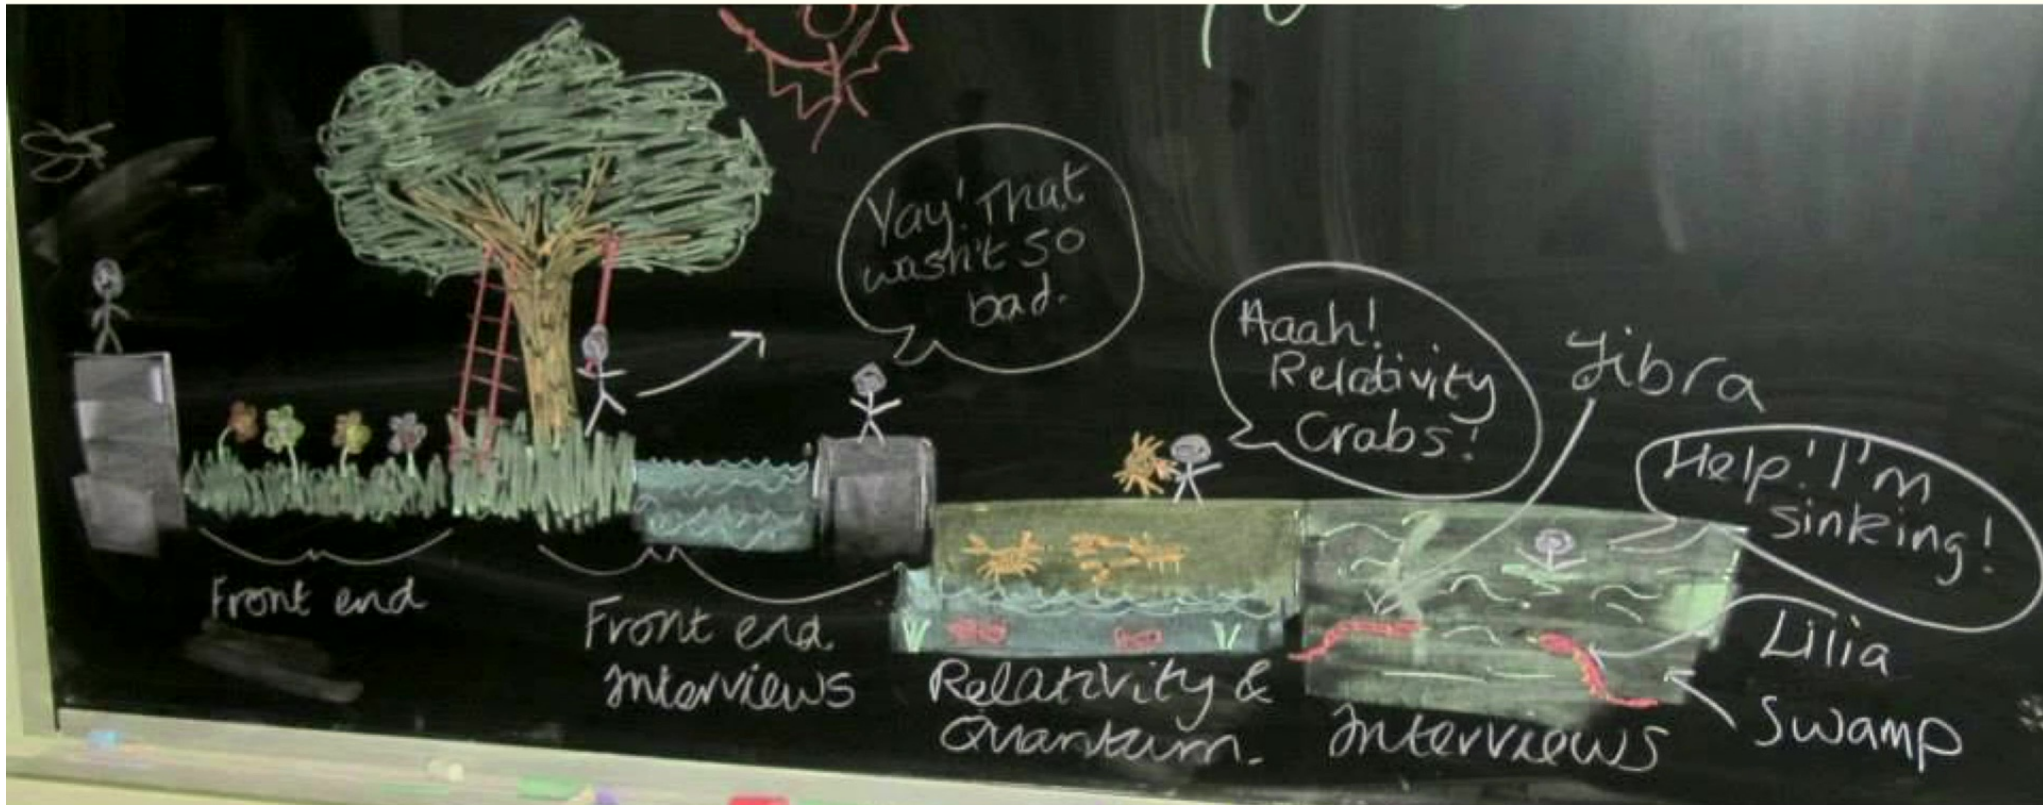 Yay! That
wasn't so
bad.
Aaah!
Relativity
Crabs!
Jibra
Help! I'm
sinking!
Front end
Front end
Interviews
Relativity &
Quantum.
Interviews
Lilia
Swamp